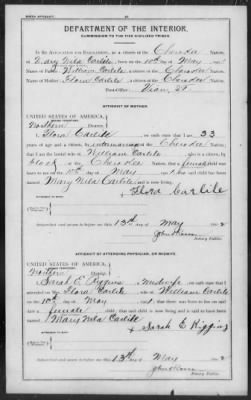 BIRTH AFFIDAVIT.
DEPARTMENT OF THE INTERIOR.
COMMISSION TO THE FIVE CIVILIZED TRIBES.
IN RE APPLICATION FOR ENROLLMENT, as a citizen of the Cherokee Nation,
of Mary Nita Carlile, born on the 10th day of May
Name of Father: William Carlile a citizen of the Cherokee Nation.
Name of Mother: Flora Carlile a citizen of the Cherokee Nation.
Post-Office: Vian, I.T.
AFFIDAVIT OF MOTHER.
UNITED STATES OF AMERICA
Northern District
I, Flora Carlile, on oath state that I am 33
years of age and a citizen, by intermarriage of the Cherokee Nation;
that I am the lawful wife of William Carlile, who is a citizen, by
blood of the Cherokee Nation; that a female child was
born to me on the 10th day of May
Mary Nita Carlile and is now living.
Flora Carlile
Subscribed and sworn to before me this 13th day of May
Notary Public.
AFFIDAVIT OF ATTENDING PHYSICIAN, OR MIDWIFE.
UNITED STATES OF AMERICA
Northern District
I, Sarah E Riggins, a midwife, on oath state that I
attended on Mrs. Flora Carlile, wife of William Carlile
on the 10th day of May; that there was born to her on said
date a female child; that said child is now living and is said to have
been named Mary Nita Carlile
Sarah E Riggins
Subscribed and sworn to before me this 13th day of May
Notary Public.